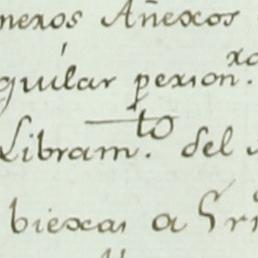 nexos Añexos
guilar pexion.xo
Libram.to del
biexas a Gri